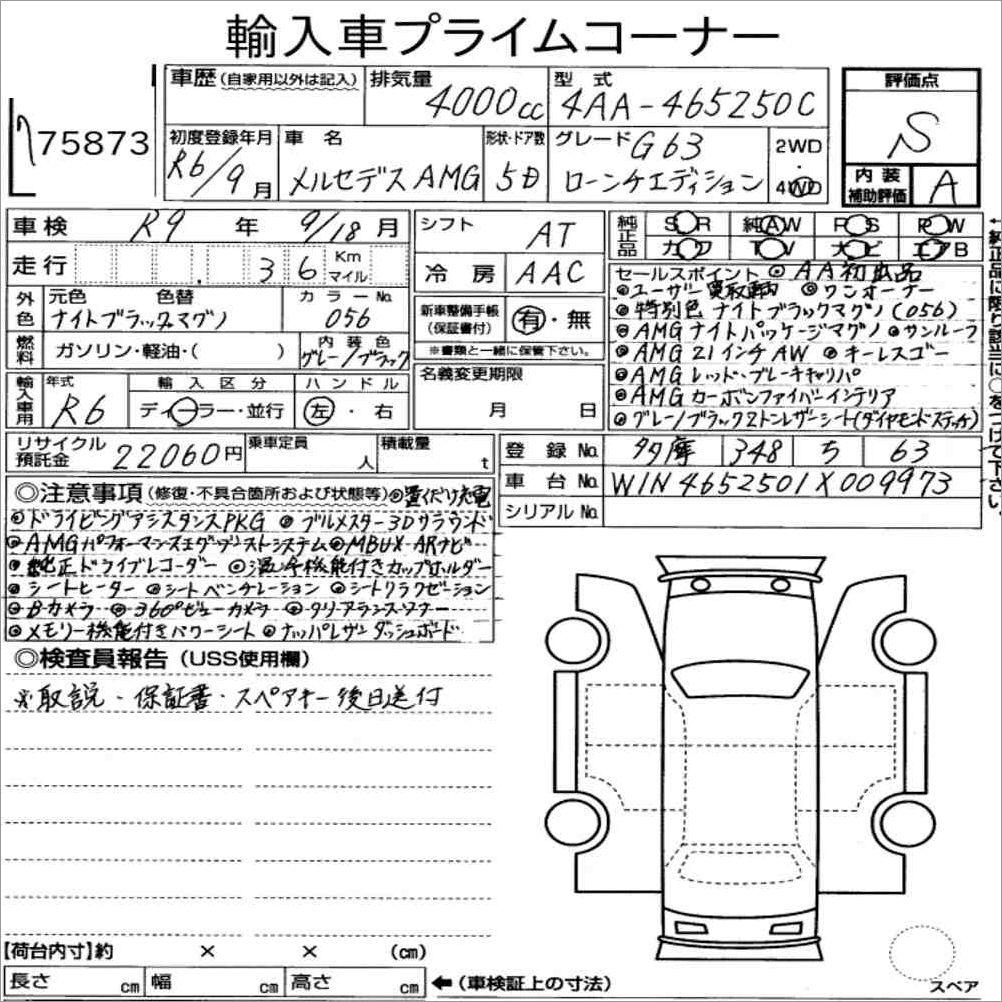 輸入車プライムコーナー
75873
車歴 (自家用以外は記入) 排気量 4000cc 型式 4AA-465250C
評価点 S
初度登録年月 R6/9月 車名 メルセデスAMG 形状・ドア数 5D グレード G63 ローンチエディション 2WD 4WD
内装補助評価 A
車検 R9年 9/18月
シフト AT
純正品 SR 純AW PS PW
カワ TV ナビ エアB
走行 36 Km マイル
冷房 AAC
セールスポイント ◎AA初出品
◎ユーザー買取車両 ◎ワンオーナー
外色 元色 ナイトブラックマグノ 色替 カラーNo. 056
新車整備手帳 (保証書付) 有・無
※書類と一緒に保管下さい。
◎特別色 ナイトブラックマグノ(056)
◎AMGナイトパッケージマグノ ◎サンルーフ
燃料 ガソリン・軽油・( ) 内装色 グレー/ブラック
◎AMG 21インチAW ◎キーレスゴー
名義変更期限 月 日
◎AMG レッド・ブレーキキャリパ
輸入車用 年式 R6 輸入区分 ディーラー・並行 ハンドル 左・右
◎AMG カーボンファイバーインテリア
◎グレー/ブラック2トンレザーシート(ダイヤモンドステッチ)
←純正品に限り該当に○をつけて下さい。
リサイクル預託金 22060円 乗車定員 人 積載量 t
登録No. 多摩 348 ち 63
車台No. W1N4652501X009973
シリアルNo.
◎注意事項 (修復・不具合箇所および状態等) ◎置くだけ充電
◎ドライビングアシスタンスPKG ◎ブルメスター3Dサラウンド
◎AMGパフォーマンスエグゾーストシステム ◎MBUX ARナビ
◎純正ドライブレコーダー ◎温冷機能付きカップホルダー
◎シートヒーター ◎シートベンチレーション ◎シートリラクゼーション
◎Bカメラ ◎360°ビューカメラ ◎クリアランスソナー
◎メモリー機能付きパワーシート ◎ナッパレザーダッシュボード
◎検査員報告 (USS使用欄)
※取説・保証書・スペアキー後日送付
【荷台内寸】約 × × (cm)
長さ cm 幅 cm 高さ cm ←(車検証上の寸法)
スペア